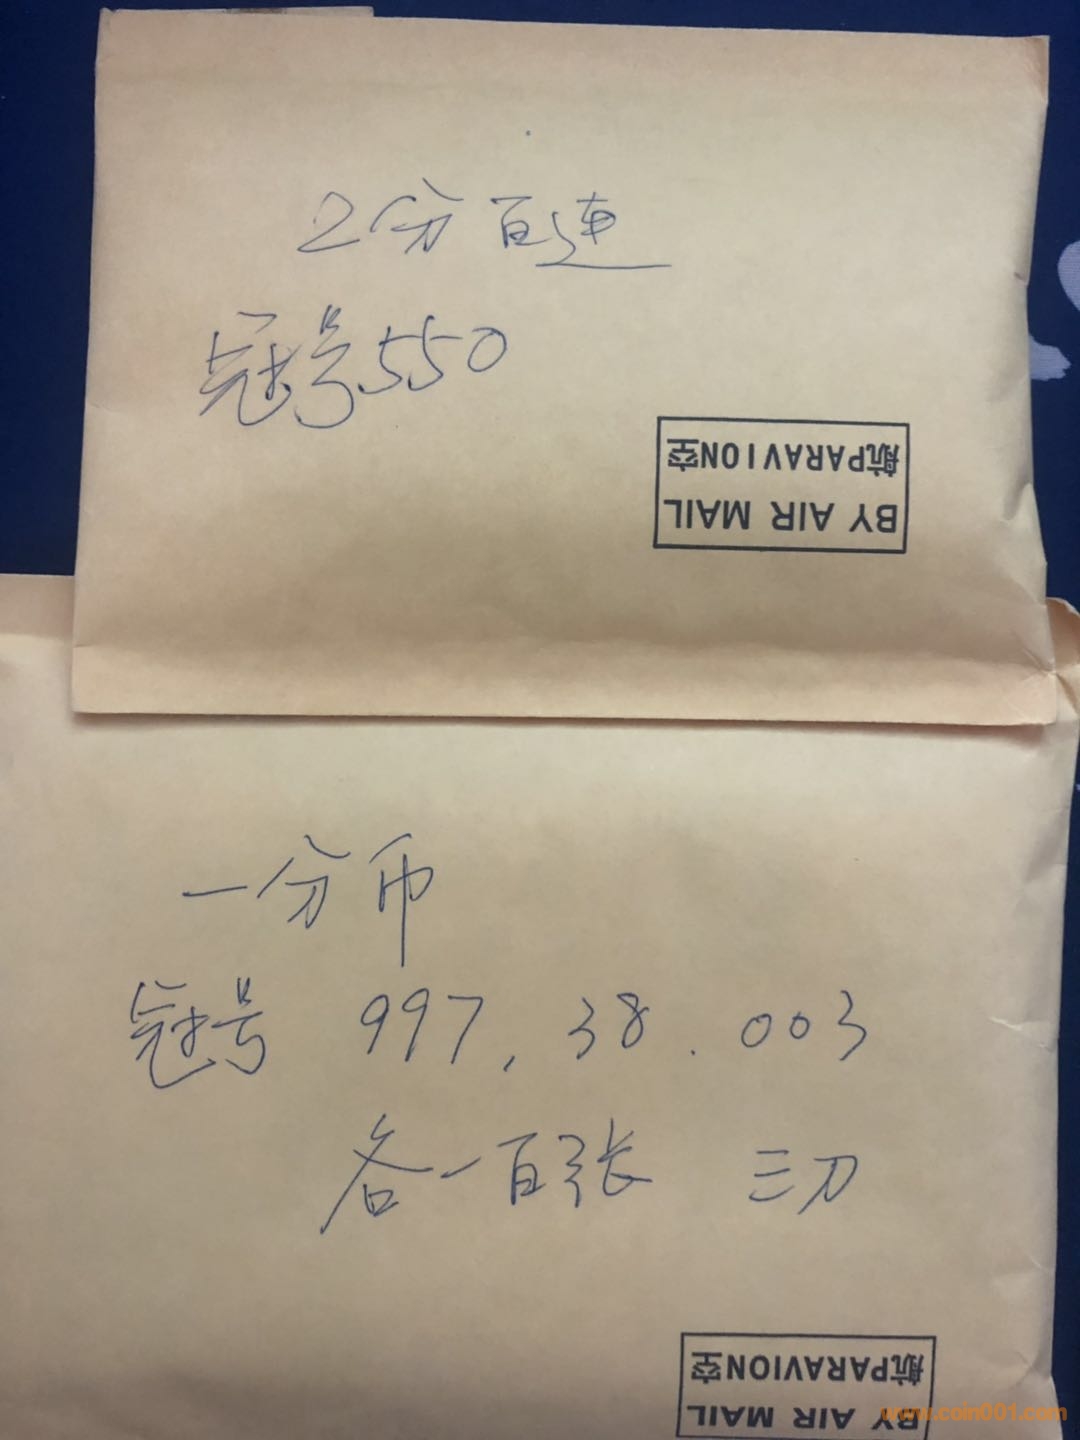 2分百连
冠号550
航PARAVION空
BY AIR MAIL
一分币
冠号 997, 38. 003
各一百张 三刀
航PARAVION空
BY AIR MAIL
www.coin001.com